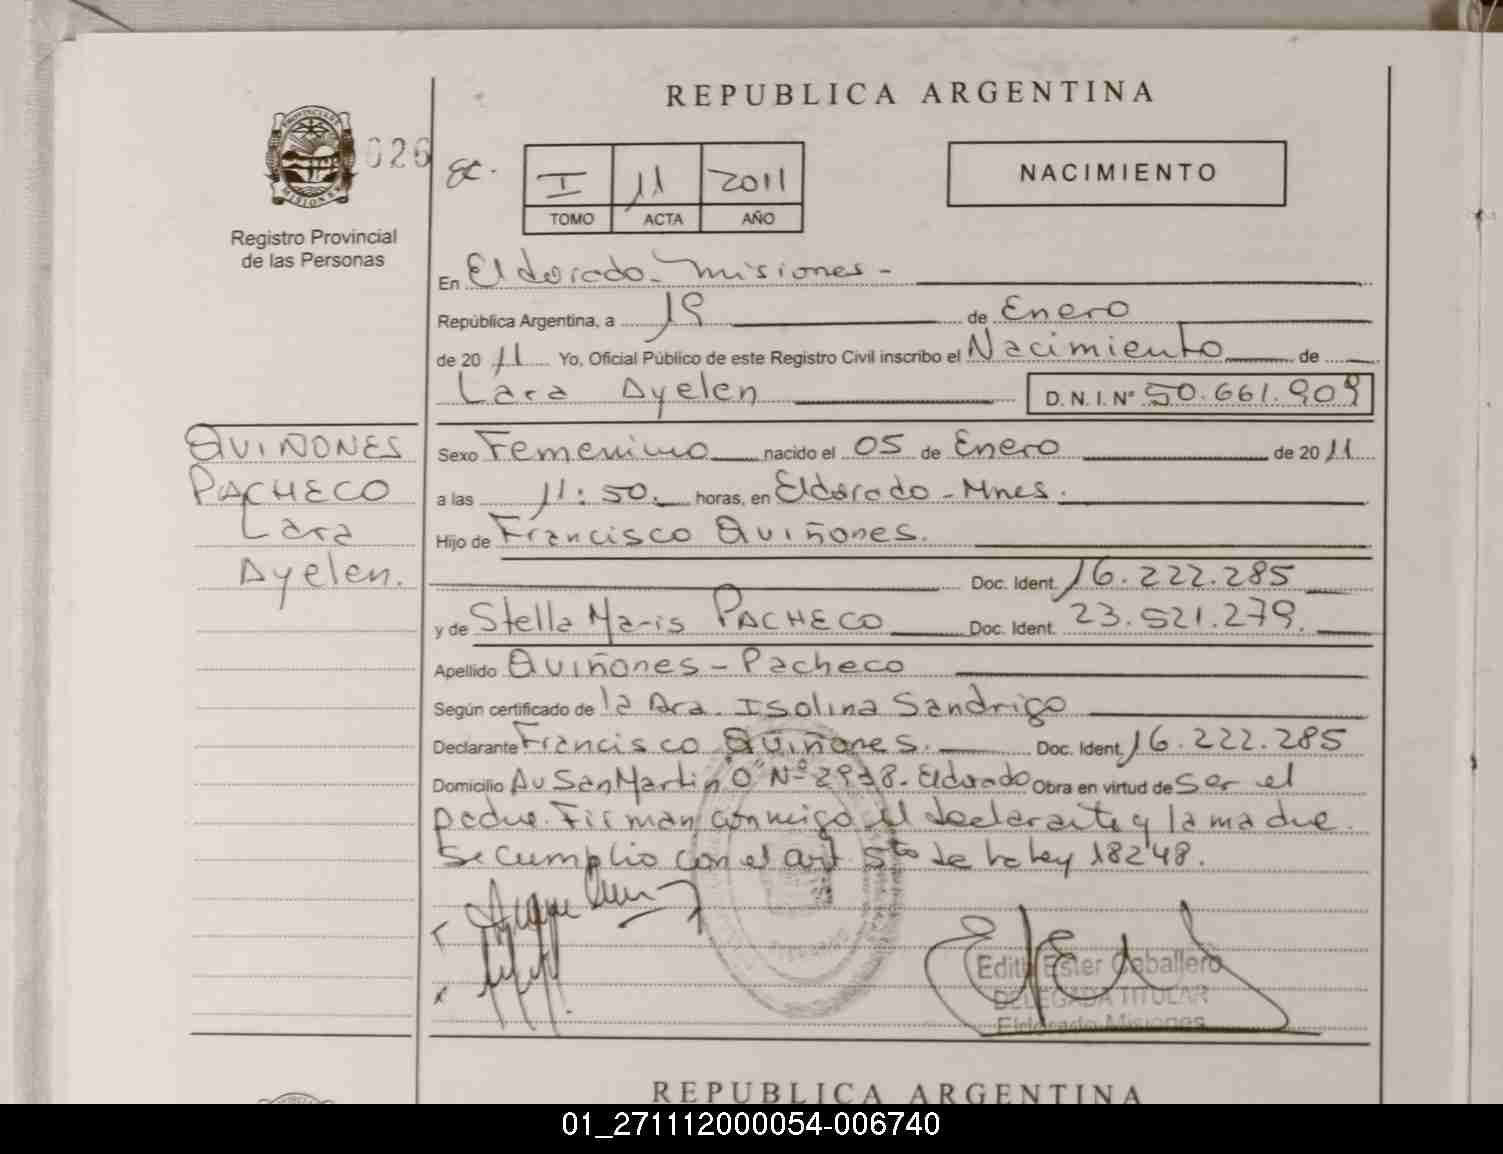 REPUBLICA ARGENTINA
PROVINCIA DE
MISIONES
026
Registro Provincial
de las Personas
I 11 2011
TOMO ACTA AÑO
NACIMIENTO
En Eldorado - Misiones -
República Argentina, a 19 de Enero
de 20 11 Yo, Oficial Público de este Registro Civil inscribo el Nacimiento de
Lara Ayelen D. N. I. Nº 50.661.909
QUIÑONES
PACHECO
Lara
Ayelen.
Sexo Femenino nacido el 05 de Enero de 20 11
a las 11:50. horas, en Eldorado - Mnes.
Hijo de Francisco Quiñones.
Doc. Ident. 16.222.285
y de Stella Maris PACHECO Doc. Ident. 23.521.279.
Apellido Quiñones - Pacheco
Según certificado de la Dra. Isolina Sandrigo
Declarante Francisco Quiñones. Doc. Ident. 16.222.285
Domicilio Av San Martin O Nº 2938. Eldorado Obra en virtud de ser el
padre. Firman conmigo el declarante y la madre.
Se cumplio con el art 5to de la ley 18248.
Edith Ester Caballero
DELEGADA TITULAR
Eldorado Misiones
REPUBLICA ARGENTINA
01_271112000054-006740